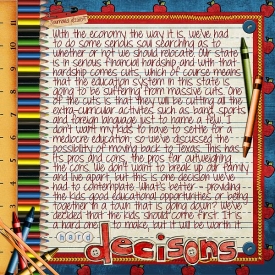 With the economy the way it is, we've had
to do some serious soul searching as to
whether or not we should relocate. Our state
is in serious financial hardship and with that
hardship comes cuts, which of course means
that the education system in this state is
going to be suffering from massive cuts. One
of the cuts is that they will be cutting all the
extra-curricular activities such as band, sports
and foreign language just to name a few. I
don't want my kids to have to settle for a
mediocre education, so we've discussed the
possibility of moving back to Texas. This has it's
pros and cons, the pros far outweighing
the cons. We don't want to break up our family
and live apart, but this is one decision we've
had to contemplate. What's better - providing
the kids good educational opportunities or being
together in a town that is going down? We've
decided that the kids should come first. It is
a hard one to make, but it will be worth it.
hard
decisons